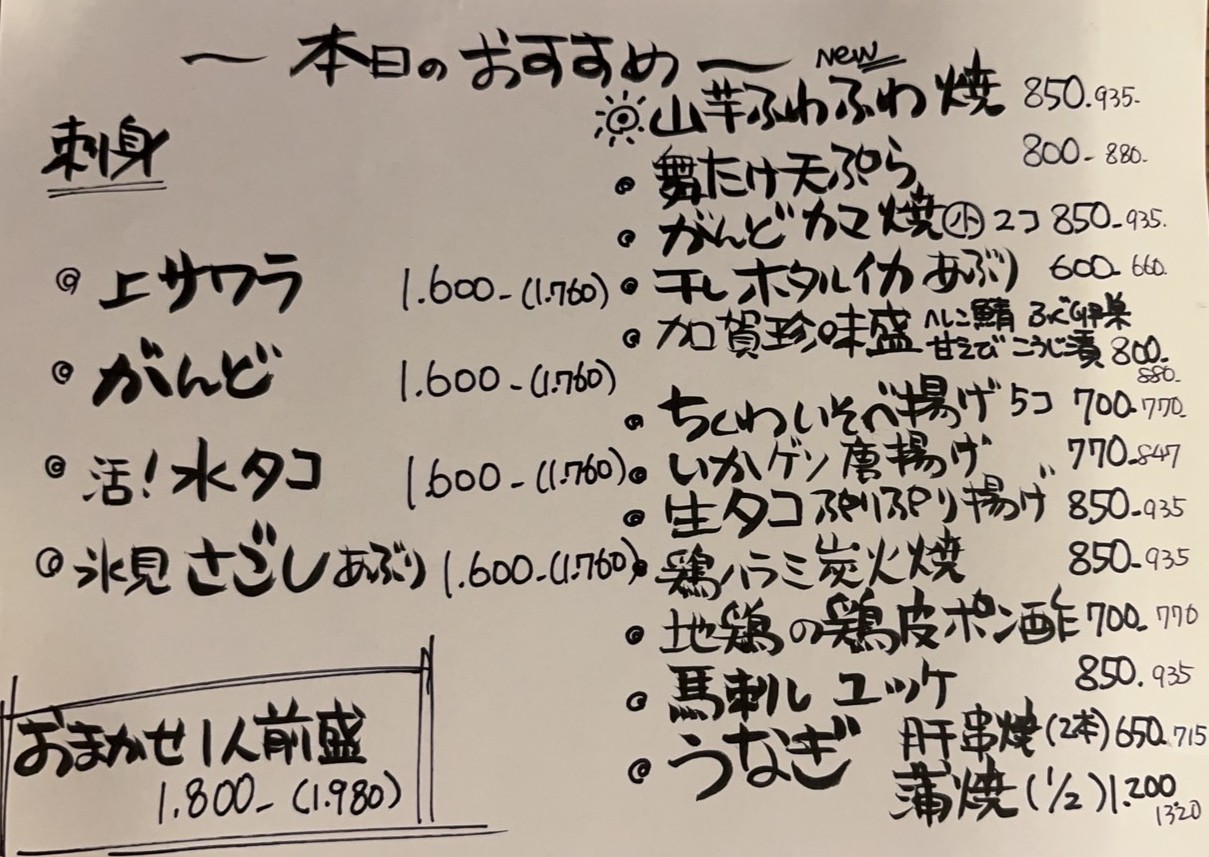 〜 本日のおすすめ 〜
刺身
◎ 上サワラ 1.600-(1.760)
◎ がんど 1.600-(1.760)
◎ 活!水タコ 1.600-(1.760)
◎ 氷見 さごしあぶり 1.600-(1.760)
おまかせ1人前盛
1.800-(1.980)
NEW
山芋ふわふわ焼 850.935-
舞たけ天ぷら 800-880-
がんどカマ焼㊥2コ 850-935.
干しホタルイカあぶり 600-660.
加賀珍味盛 へしこ鯖 ふぐ卵巣
甘えびこうじ漬 800-
880-
ちくわいそべ揚げ 5コ 700-770-
いかゲソ唐揚げ 770-847
生タコぷりぷり揚げ 850-935
鶏ハラミ炭火焼 850-935
地鶏の鶏皮ポン酢 700-770
馬刺しユッケ 850.935
うなぎ 肝串焼(2本)650-715
蒲焼(1/2)1.200
1320